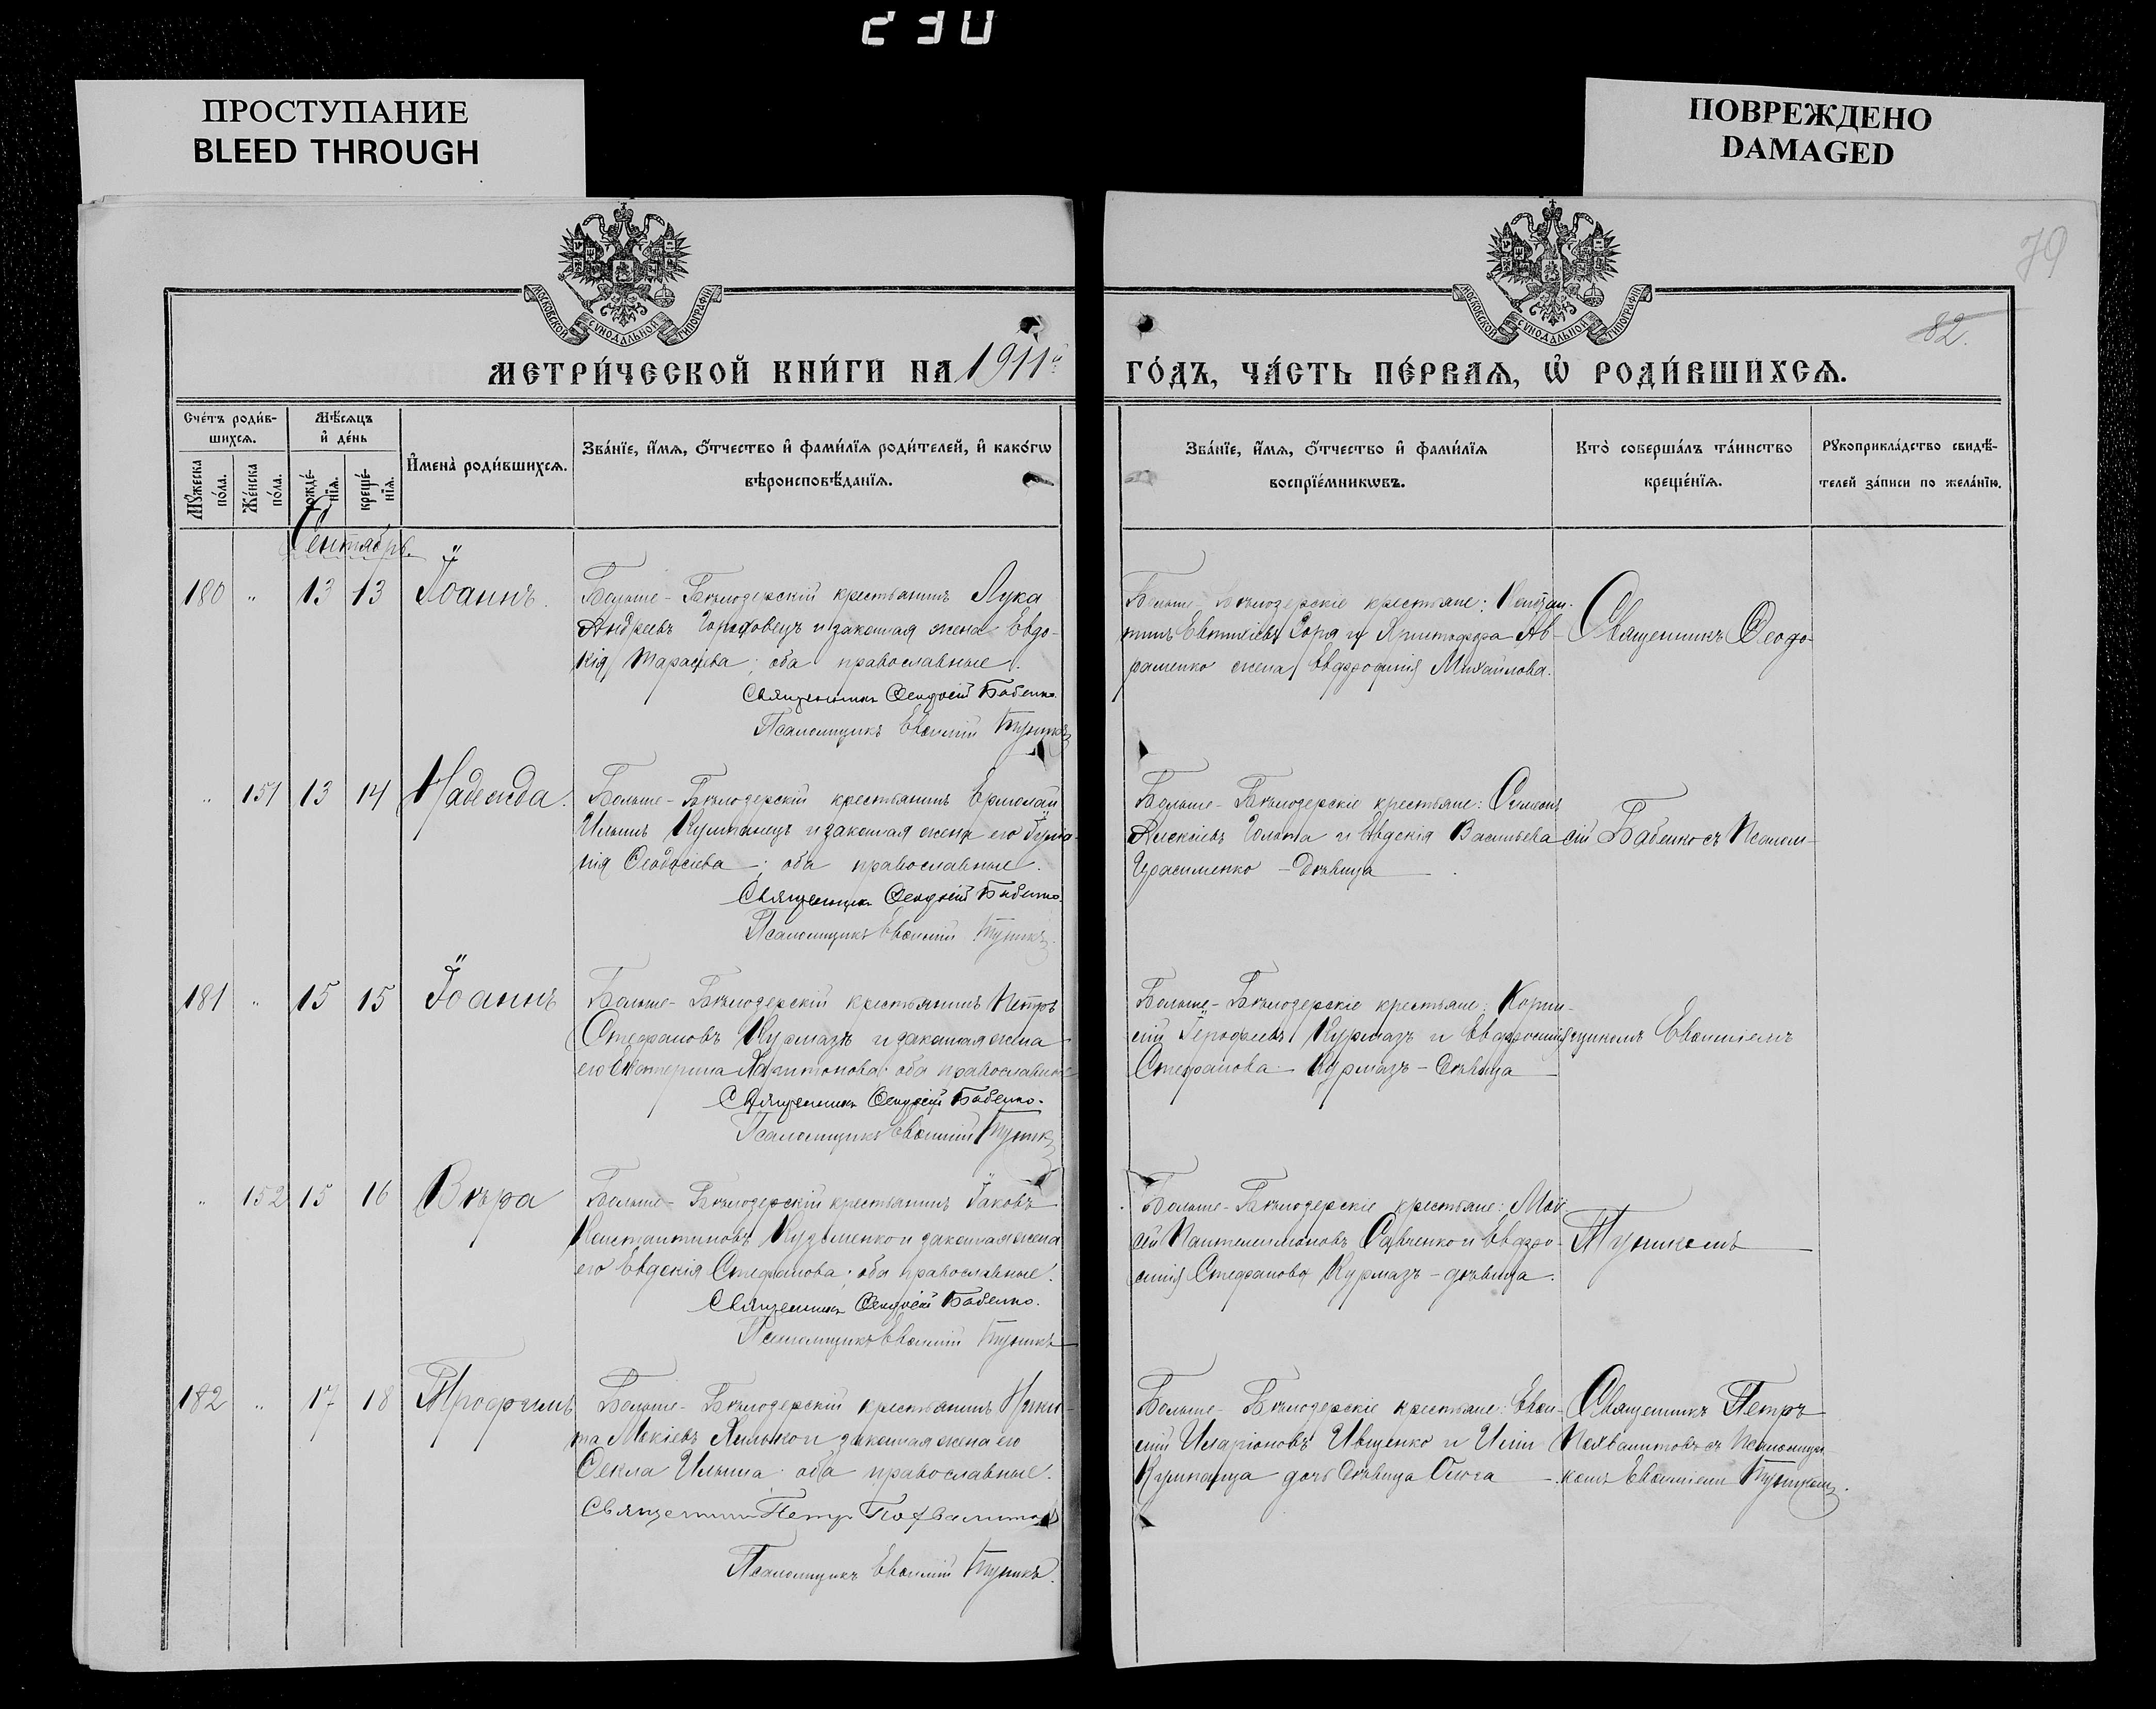 230
ПРОСТУПАНИЕ
BLEED THROUGH
ПОВРЕЖДЕНО
DAMAGED
79
82.
МОСКОВСКОЙ СѴНОДАЛЬНОЙ ТИПОГРАФІИ
МОСКОВСКОЙ СѴНОДАЛЬНОЙ ТИПОГРАФІИ
МЕТРИ́ЧЕСКОЙ КНИ́ГИ НА 1911й
ГО́ДЪ, ЧА́СТЬ ПЕ́РВАЯ, Ѡ҆ РОДИ́ВШИХСЯ.
Сче́тъ роди́в-
шихся.
Мѣ́сяцъ
и҆ де́нь
Мꙋ́жеска
по́ла.
Же́нска
по́ла.
рожде́-
нїя.
креще́-
нїя.
И҆мена̀ роди́вшихся.
Зва́нїе, и҆́мя, о҆́тчество и҆ фами́лїя роди́телей, и҆ како́гѡ
вѣроисповѣ́данїя.
Зва́нїе, и҆́мя, о҆́тчество и҆ фами́лїя
воспрїе́мникѡвъ.
Кто̀ соверша́лъ та́инство
креще́нїя.
Рꙋкоприкла́дство свидѣ́-
телей за́писи по жела́нїю.
Сентябрь.
180 " 13 13 Іоаннъ.
Больше-Бѣлозерскій крестьянинъ Лука
Андреевъ и законная жена Евдо-
кія Тарасіева; оба православные.
Священникъ Ѳеодосій Бабенко.
Псаломщикъ Евѳимій Туникъ
Больше-Бѣлозерскіе крестьяне: Констан-
тинъ Евѳиміевъ Зоря и Христофора Ав-
раменко жена Евфросинія Михайлова.
Священникъ Ѳеодо-
" 151 13 14 Надежда.
Больше-Бѣлозерскій крестьянинъ Ермолай
Ильинъ Кумпанецъ и законная жена его
нія Ѳеодосіева; оба православные.
Священникъ Ѳеодосій Бабенко.
Псаломщикъ Евѳимій Туникъ.
Больше-Бѣлозерскіе крестьяне: Симеонъ
Алексіевъ Голота и Евдокія Васильева
Герасименко - дѣвица
сій Бабенко съ Псалом-
181 " 15 15 Іоаннъ
Больше-Бѣлозерскій крестьянинъ Петръ
Стефановъ Курмазъ и законная жена
его Екатерина Харитонова; оба православные
Священникъ Ѳеодосій Бабенко.
Псаломщикъ Евѳимій Туникъ
Больше-Бѣлозерскіе крестьяне: Корни-
лій Іероѳеевъ Курмазъ и Евфросинія
Стефанова Курмазъ - дѣвица
щикомъ Евѳиміемъ
" 152 15 16 Вѣра
Больше-Бѣлозерскій крестьянинъ Іаковъ
Константиновъ Кузьменко и законная жена
его Евдокія Стефанова; оба православные.
Священникъ Ѳеодосій Бабенко.
Псаломщикъ Евѳимій Туникъ
Больше-Бѣлозерскіе крестьяне: Мои-
сей Пантелеимоновъ Савченко и Евфро-
синія Стефанова Курмазъ - дѣвица.
Туникомъ
182 " 17 18 Трофимъ
Больше-Бѣлозерскій крестьянинъ Ники-
та Мокіевъ Хилько и законная жена его
Ѳекла Ильина; оба православные.
Священникъ Петръ Похвалитовъ
Псаломщикъ Евѳимій Туникъ.
Больше-Бѣлозерскіе крестьяне: Евѳи-
мій Иларіоновъ Ивщенко и Иліи
Кумпанца дочь дѣвица
Священникъ Петръ
Похвалитовъ съ Псаломщи-
комъ Евѳиміемъ Туникомъ.